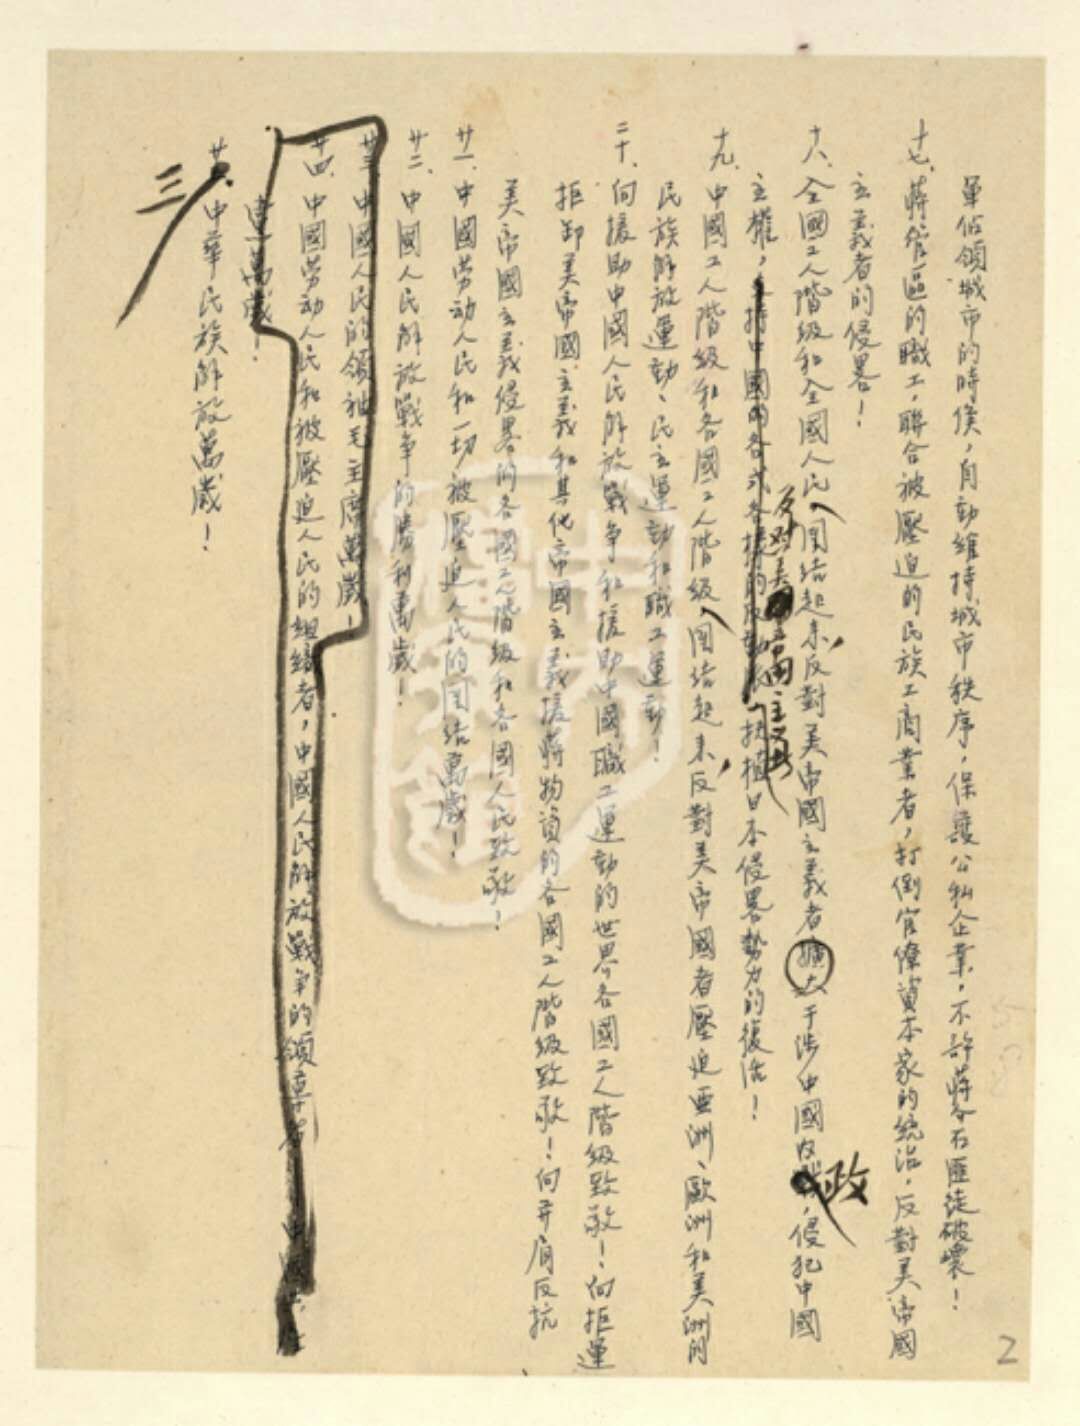 軍佔領城市的時候，自動維持城市秩序，保護公私企業，不許蔣介石匪徒破壞！
十七、蔣管區的職工，聯合被壓迫的民族工商業者，打倒官僚資本家的統治，反對美帝國
主義者的侵畧！
十八、全國工人階級和全國人民，團结起來，反對美帝國主義者擴大干涉中國内政，侵犯中國
反對美帝国主义
主權，支持中國的各式各樣的反動派，扶植日本侵畧勢力的復活！
十九、中國工人階級和各國工人階級，團结起來，反對美帝國者壓迫亚洲、歐洲和美洲的
民族解放運動、民主運動和職工運動！
二十、向援助中國人民解放戰争和援助中國職工運動的世界各國工人階級致敬！向拒運
拒卸美帝國主義和其他帝國主義援蔣物資的各國工人階級致敬！向并肩反抗
美帝國主義侵畧的各國工人階級和各國人民致敬！
廿一、中國劳动人民和一切被壓迫人民的团结萬歲！
廿二、中國人民解放戰争的勝利萬歲！
廿三、中國人民的領袖毛主席萬歲！
廿四、中國劳动人民和被壓迫人民的組織者，中國人民解放戰争的領導者
萬歲！
三
中華民族解放萬歲！
2